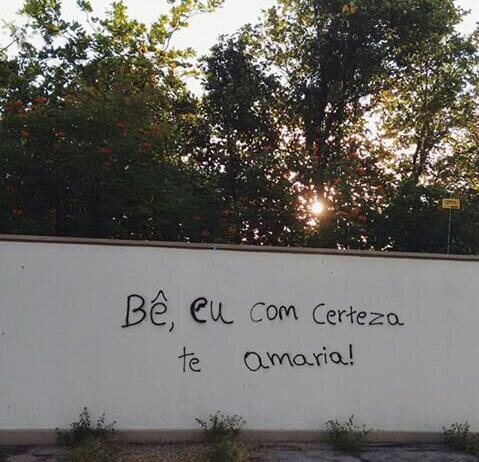 Bê, eu com certeza
te amaria!